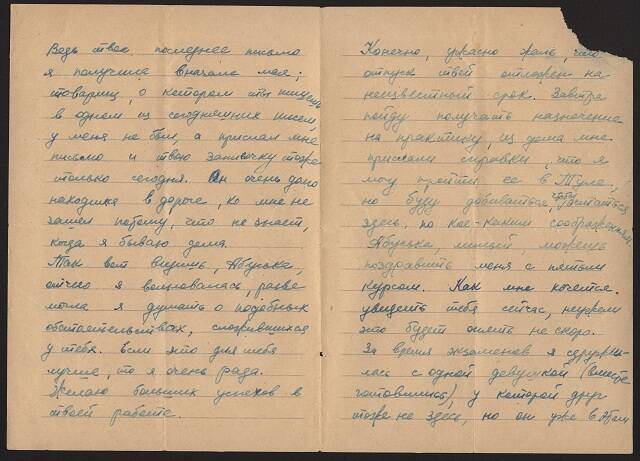 Ведь твоё последнее письмо
я получила вначале мая;
товарищ, о котором ты пишешь
в одном из сегодняшних писем,
у меня не был, а прислал мне
письмо и твою записочку тоже
только сегодня. Он очень долго
находился в дороге, ко мне не
зашел потому, что не знает,
когда я бываю дома.
Так вот видишь, Абуська,
отчего я волновалась, разве
могла я думать о подобных
обстоятельствах, сложившихся
у тебя. Если это для тебя
лучше, то я очень рада.
Желаю больших успехов в
твоей работе.
Конечно, ужасно жаль, что
отпуск твой отложен на
неизвестный срок. Завтра
пойду получать назначение
на практику, из дома мне
прислали справки, что я
могу пройти ее в Туле,
но буду добиваться, чтобы остаться
здесь, по кое-каким соображениям.
Абуська, милый, можешь
поздравить меня с пятым
курсом. Как мне хочется
увидеть тебя сейчас, неужели
это будет опять не скоро.
За время экзаменов я сдружи-
лась с одной девушкой (вместе
готовились), у которой друг
тоже не здесь, но он уже в